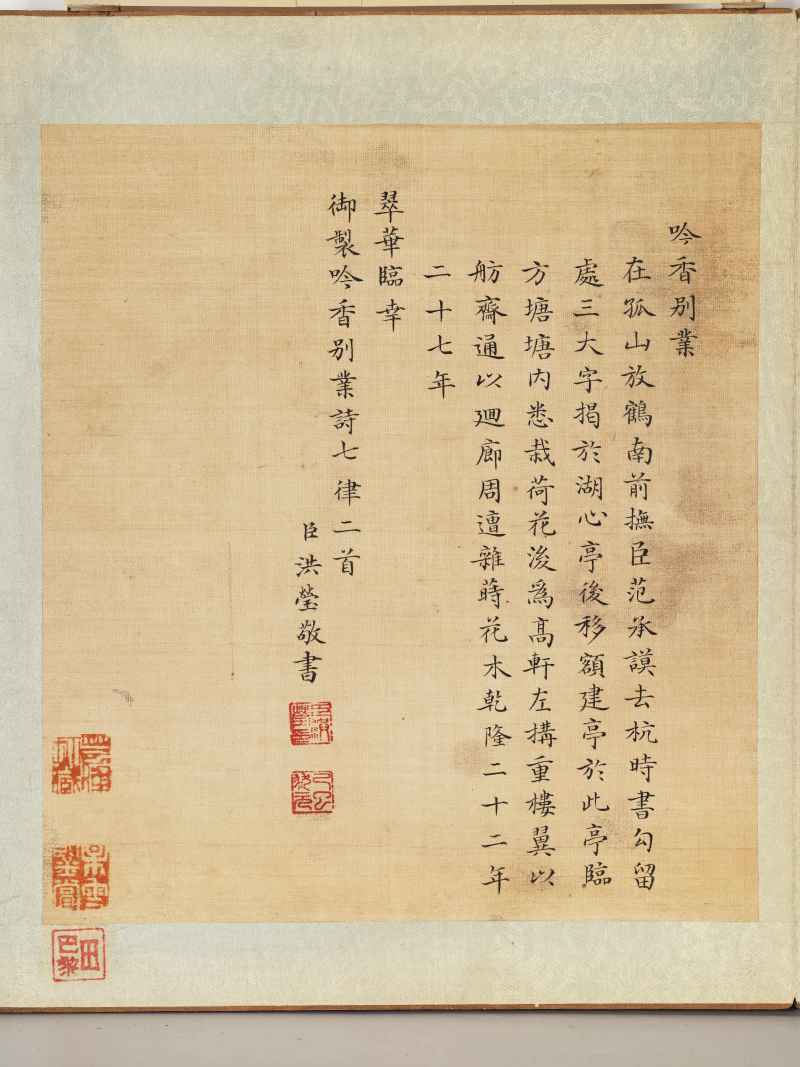 吟香别業
在孤山放鶴南前撫臣范承謨去杭時書勾留
處三大字揭於湖心亭後移額建亭於此亭臨
方塘塘内悉栽荷花後為髙軒左構重樓翼以
舫齋通以廻廊周遭雜蒔花木乾隆二十二年
二十七年
翠華臨幸
御製吟香别業詩七律二首
臣洪瑩敬書